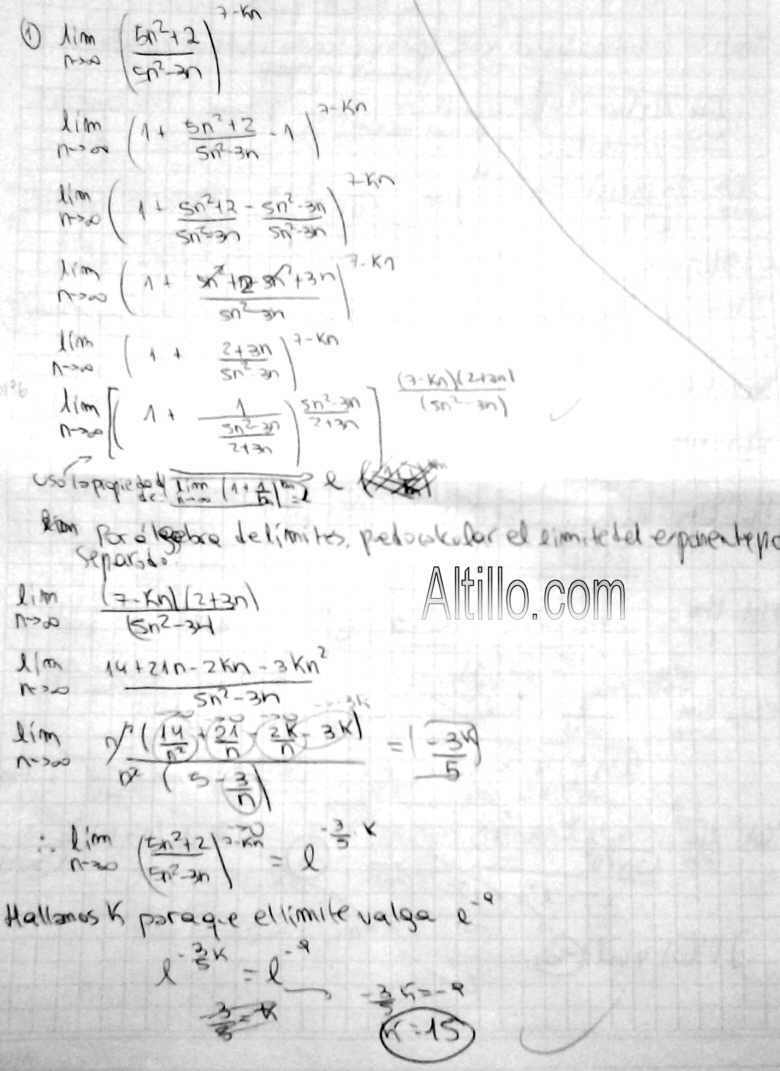 ① lim n→∞ ((5n²+2)/(5n²-3n))^(7-Kn)
lim n→∞ (1 + (5n²+2)/(5n²-3n) - 1)^(7-Kn)
lim n→∞ (1 + (5n²+2)/(5n²-3n) - (5n²-3n)/(5n²-3n))^(7-Kn)
lim n→∞ (1 + (5n²+2-5n²+3n)/(5n²-3n))^(7-Kn)
lim n→∞ (1 + (2+3n)/(5n²-3n))^(7-Kn)
lim n→∞ [(1 + 1/((5n²-3n)/(2+3n)))^((5n²-3n)/(2+3n))]^((7-Kn)(2+3n)/(5n²-3n))
uso la propiedad de: lim n→∞ (1+1/m)^m = e
Por álgebra de límites, puedo calcular el límite del exponente por
separado.
Altillo.com
lim n→∞ (7-Kn)(2+3n)/(5n²-3n)
lim n→∞ (14+21n-2Kn-3Kn²)/(5n²-3n)
lim n→∞ n²(14/n² + 21/n - 2K/n - 3K)/(n²(5 - 3/n)) = (-3K/5)
∴ lim n→∞ ((5n²+2)/(5n²-3n))^(7-Kn) = e^(-3/5 K)
Hallamos K para que el límite valga e^-9
e^(-3/5 K) = e^-9
-3/5 K = -9
K=15